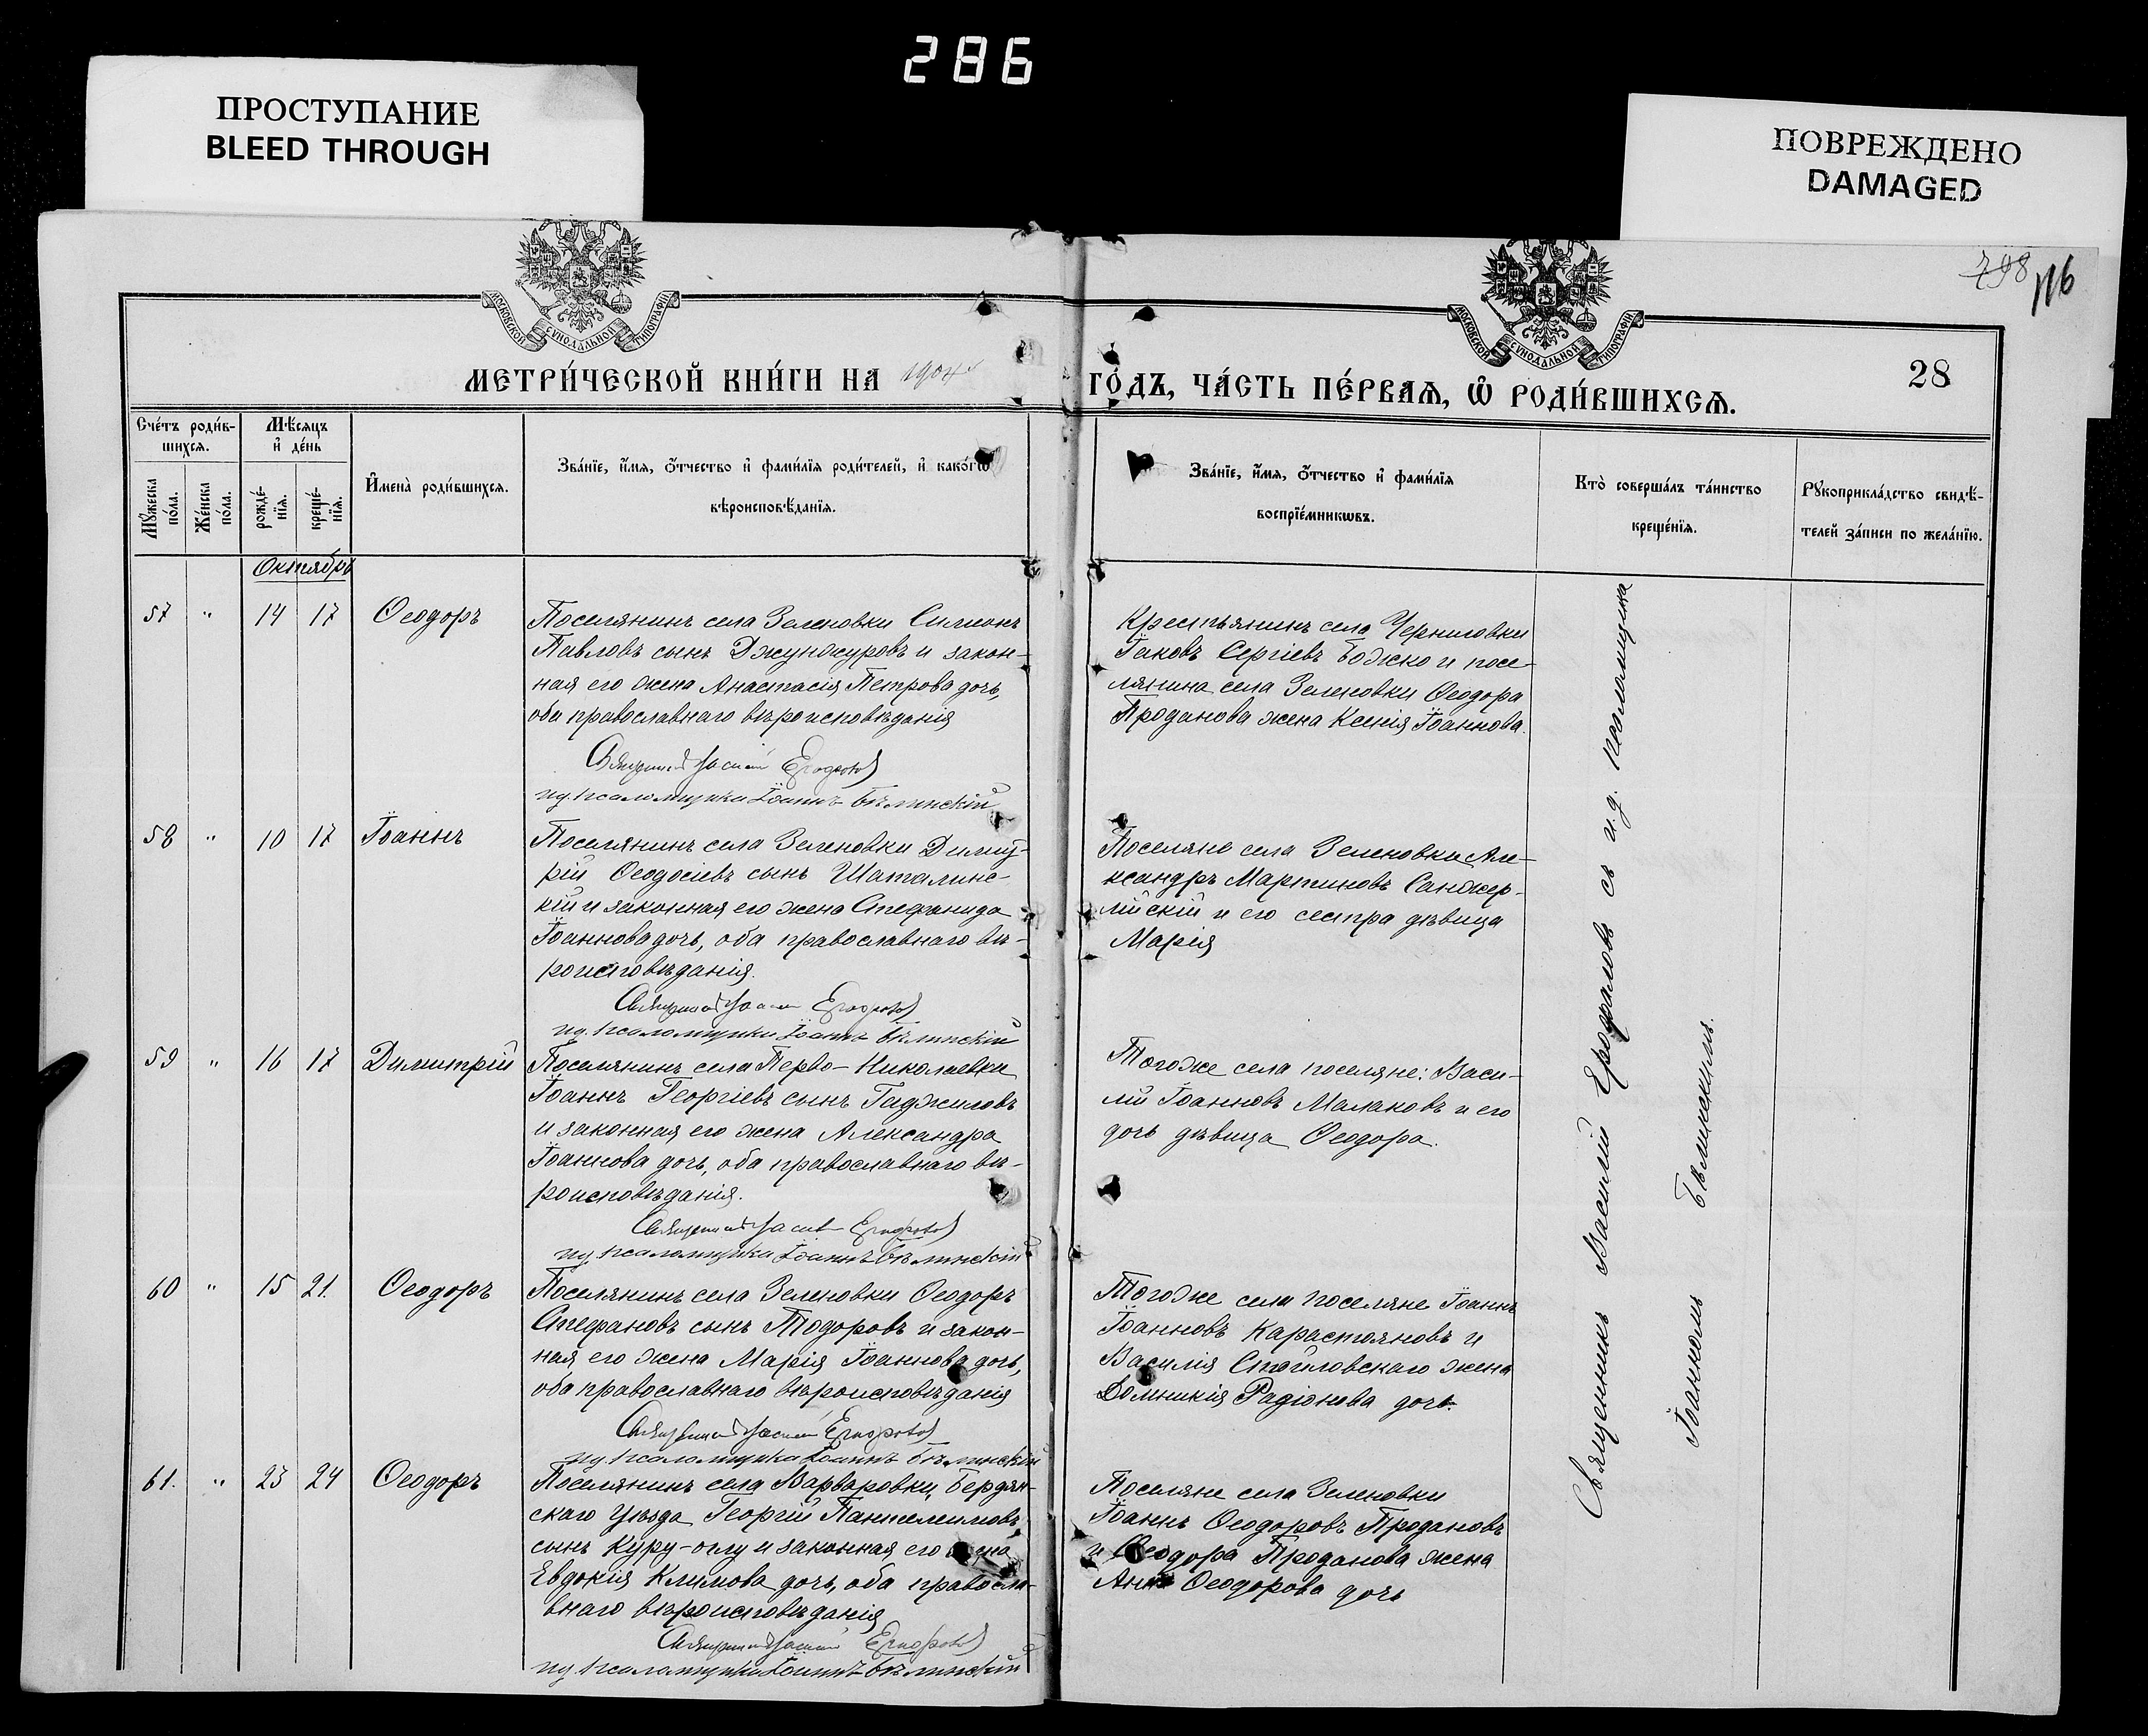 286
ПРОСТУПАНИЕ
BLEED THROUGH
ПОВРЕЖДЕНО
DAMAGED
МОСКОВСКОЙ СѴНОДАЛЬНОЙ ТИПОГРАФІИ
МОСКОВСКОЙ СѴНОДАЛЬНОЙ ТИПОГРАФІИ
798 116
МЕТРИ́ЧЕСКОЙ КНИ́ГИ НА 1904
ГО́ДЪ, ЧА́СТЬ ПЕ́РВАѦ, Ѡ҆ РОДИ́ВШИХСѦ.
28
Сче́тъ роди́в-
шихсѧ.
Мѣ́сѧцъ
и҆ де́нь
Мꙋ́жеска
по́ла.
Же́нска
по́ла.
рожде́-
нїѧ.
креще́-
нїѧ.
И҆мена̀ роди́вшихсѧ.
Зва́нїе, и҆́мѧ, ѻ҆́тчество и҆ фами́лїѧ роди́телей, и҆ како́гѡ
вѣроисповѣ́данїѧ.
Зва́нїе, и҆́мѧ, ѻ҆́тчество и҆ фами́лїѧ
воспрїе́мникѡвъ.
Кто̀ соверша́лъ та́инство
креще́нїѧ.
Рꙋкоприкла́дство свидѣ́-
телей за́писи по жела́нїю.
Октябрь
57 " 14 17 Ѳеодоръ
Поселянинъ села Зеленовки Симеонъ
Павловъ сынъ Джунжуровъ и закон-
ная его жена Анастасія Петрова дочь,
оба православнаго вѣроисповѣданія
Священникъ Василій Ерофаловъ
ид. псаломщика Іоаннъ Бѣлинскій
Крестьянинъ села Черниговки
Іаковъ Сергіевъ Божко и посе-
лянина села Зеленовки Ѳеодора
Проданова жена Ксенія Іоаннова.
58 " 10 17 Іоаннъ
Поселянинъ села Зеленовки Димит-
рій Ѳеодосіевъ сынъ Шаталинс-
кій и законная его жена Стефанида
Іоаннова дочь, оба православнаго вѣ-
роисповѣданія.
Священникъ Василій Ерофаловъ
ид. псаломщика Іоаннъ Бѣлинскій
Поселяне села Зеленовки Але-
ксандръ Мартиновъ Санжер-
лійскій и его сестра дѣвица
Марія
59 " 16 17 Димитрій
Поселянинъ села Перво-Николаевки
Іоаннъ Георгіевъ сынъ Гаджиловъ
и законная его жена Александра
Іоаннова дочь, оба православнаго вѣ-
роисповѣданія.
Священникъ Василій Ерофаловъ
ид. псаломщика Іоаннъ Бѣлинскій
Тогоже села поселяне: Васи-
лій Іоанновъ Малаковъ и его
дочь дѣвица Ѳеодора.
60 " 15 21. Ѳеодоръ
Поселянинъ села Зеленовки Ѳеодоръ
Стефановъ сынъ Тодоровъ и закон-
ная его жена Марія Іоаннова дочь,
оба православнаго вѣроисповѣданія
Священникъ Василій Ерофаловъ
ид. псаломщика Іоаннъ Бѣлинскій
Тогоже села поселяне Іоаннъ
Іоанновъ Карастояновъ и
Василія Стойловскаго жена
Домникія Радіонова дочь.
61. " 23 24 Ѳеодоръ
Поселянинъ села Варваровки, Бердян-
скаго уѣзда Георгій Пантелеимовъ
сынъ Куру-оглу и законная его жена
Евдокія Климова дочь, оба правосла-
внаго вѣроисповѣданія
Священникъ Василій Ерофаловъ
ид. псаломщика Іоаннъ Бѣлинскій
Поселяне села Зеленовки
Іоаннъ Ѳеодоровъ Продановъ
и Ѳеодора Проданова жена
Анна Ѳеодорова дочь
Священникъ Василій Ерофаловъ съ и.д. псаломщика
Іоанномъ Бѣлинскимъ.